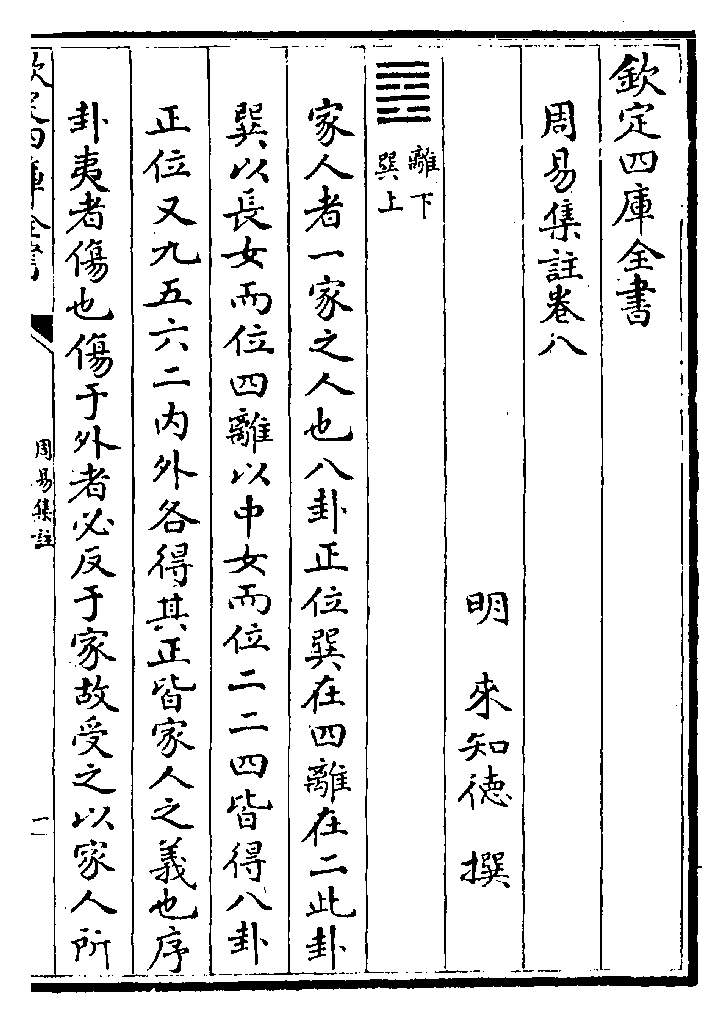 欽定四庫全書
周易集註卷八
明 來知德 撰
離下
巽上
家人者一家之人也八卦正位巽在四離在二此卦
巽以長女而位四離以中女而位二二四皆得八卦
正位又九五六二内外各得其正皆家人之義也序
卦夷者傷也傷于外者必反于家故受之以家人所
欽定四庫全書
周易集註
一